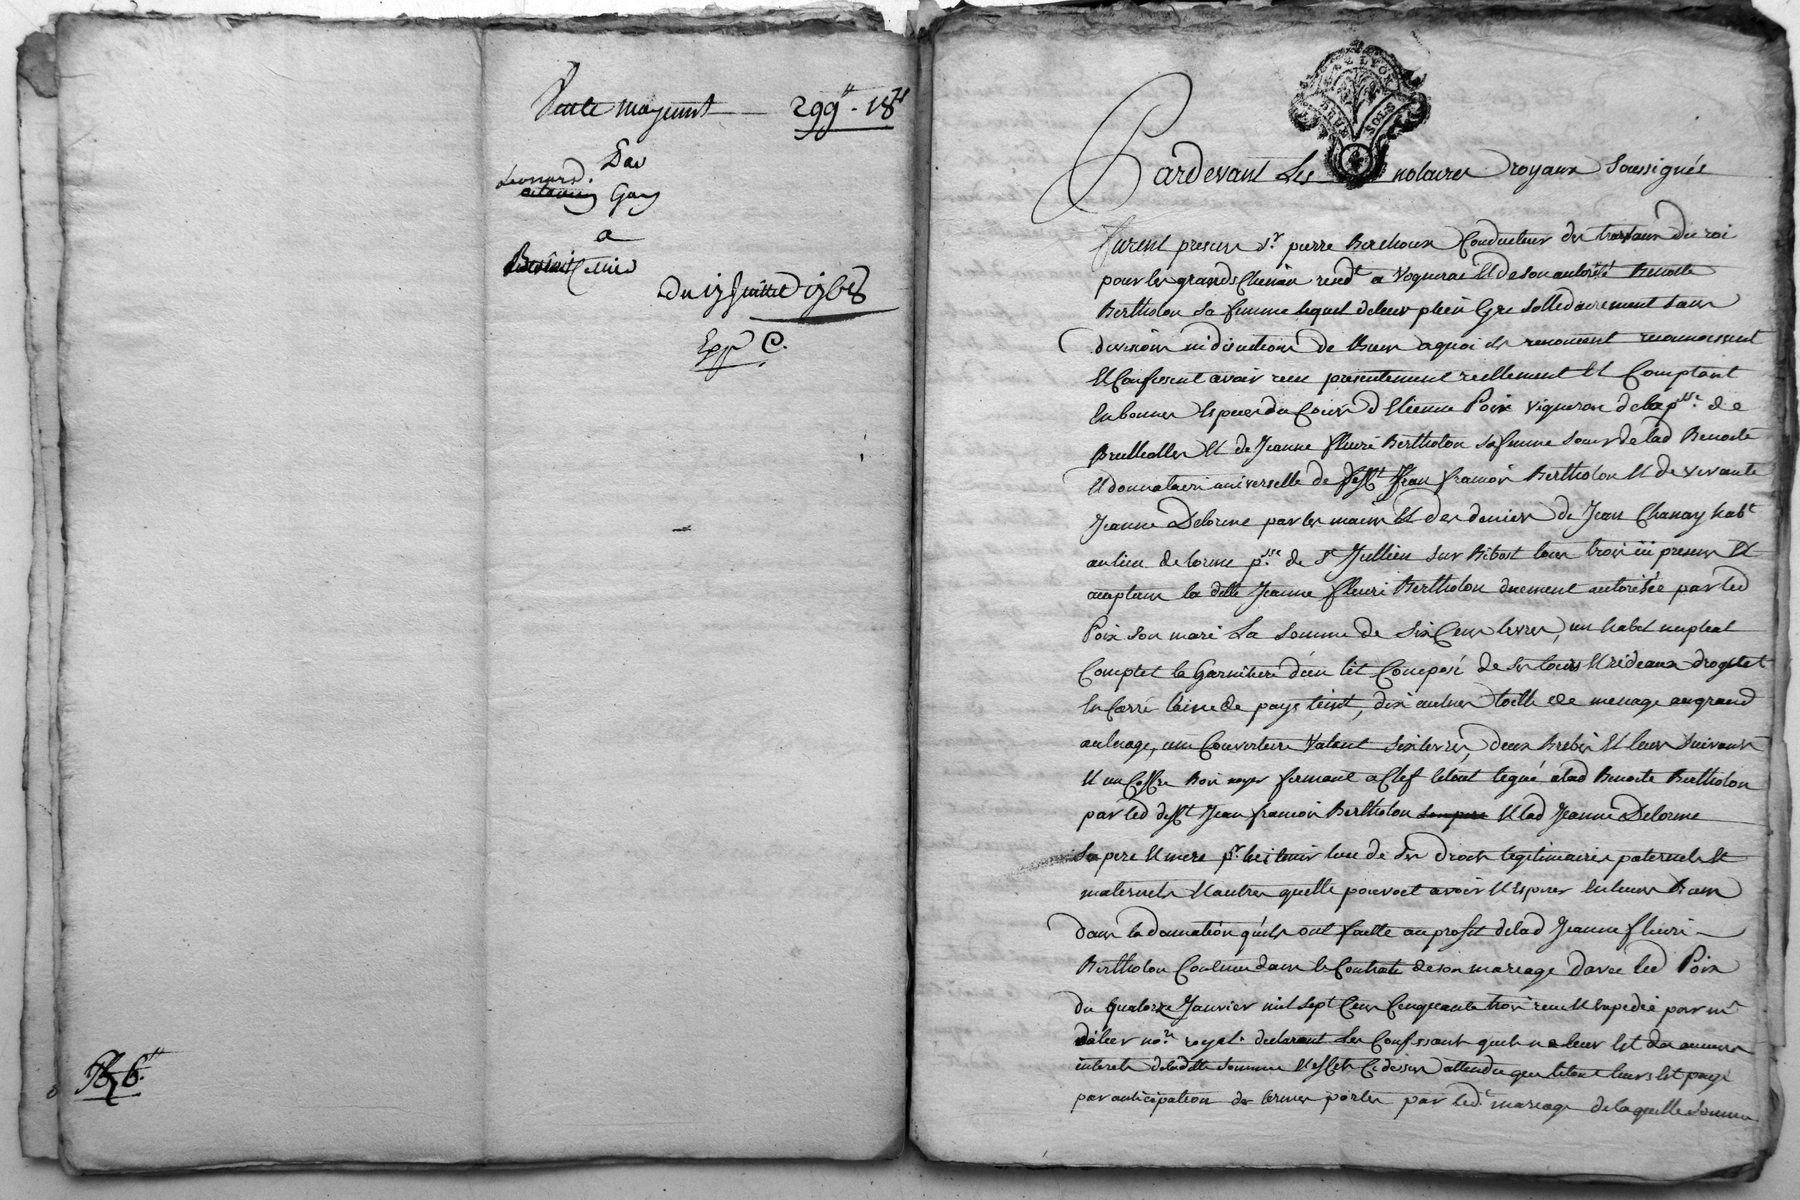 Vente moyennt 299ᵗᵗ - 18ˢ
Par
Leonard
Gay
a
Benoist
du 17 Juillet 1768
Exp C.
6ᵗᵗ
GEN DE LYON
SOLS
Pardevant Les notaires royaux soussignés
furent presens sʳ pierre Berthoux Conducteur des travaux du roi
pour les grands Chemin resdᵗ a Vognerai Et de son autorité Benoite
Bertholon sa femme lequel de leur plein Gré sollidairement sans
division ni discution de biens a quoi ils renoncent reconnoissent
Et Confessent avoir reçu presentement reellement Et Comptant
En bonnes Especes du Cours d'Etienne Poix vigneron de la pˢˢᵉ de
Brullolles Et de Jeanne fleurie Bertholon sa femme soeur de lad Benoite
Et donnataire universelle de deffᵗ Jean françois Bertholon Et de vivante
Jeanne Delorme par les mains Et des deniers de Jean Chanay habᵗ
au lieu de lorme pˢˢᵉ de Sᵗ Jullien sur Bibost tous trois ici presens Et
acceptans la ditte Jeanne fleuri Bertholon duement autorisée par led
Poix son mari La somme de six Cens livres, un habit nuptial
Complet la Garniture d'un lit Composé de ses tours Et rideaux droguet
En Carré laine de pays teint, dix aulnes toille de menage au grand
aulnage, une Couverture Valant six livres, deux Brebis Et leurs suivans
Et un Coffre Bois noyer fermant a Clef le tout legué a lad Benoite Bertholon
par led deffᵗ Jean françois Bertholon son pere Et lad Jeanne Delorme
Sa pere Et mere pʳ lui tenir lieu de ses droits legitimaires paternels Et
maternels Et autres quelle pouvoit avoir Et Esperer En leurs biens
dans la donnation quils ont faitte au profit de lad Jeanne fleuri
Bertholon Contenue dans le Contrat de son mariage d'avec led Poix
du Quatorze Janvier mil sept Cens Cinquante trois reçu Et Expedié par mᵉ
noʳᵉ royal. declarant les Confessants quil ne leur Est du aucuns
interets de laditte somme Et effets Ci dessus attendu que le tout leurs Est payé
par anticipation des termes portés par led. mariage de laquelle somme